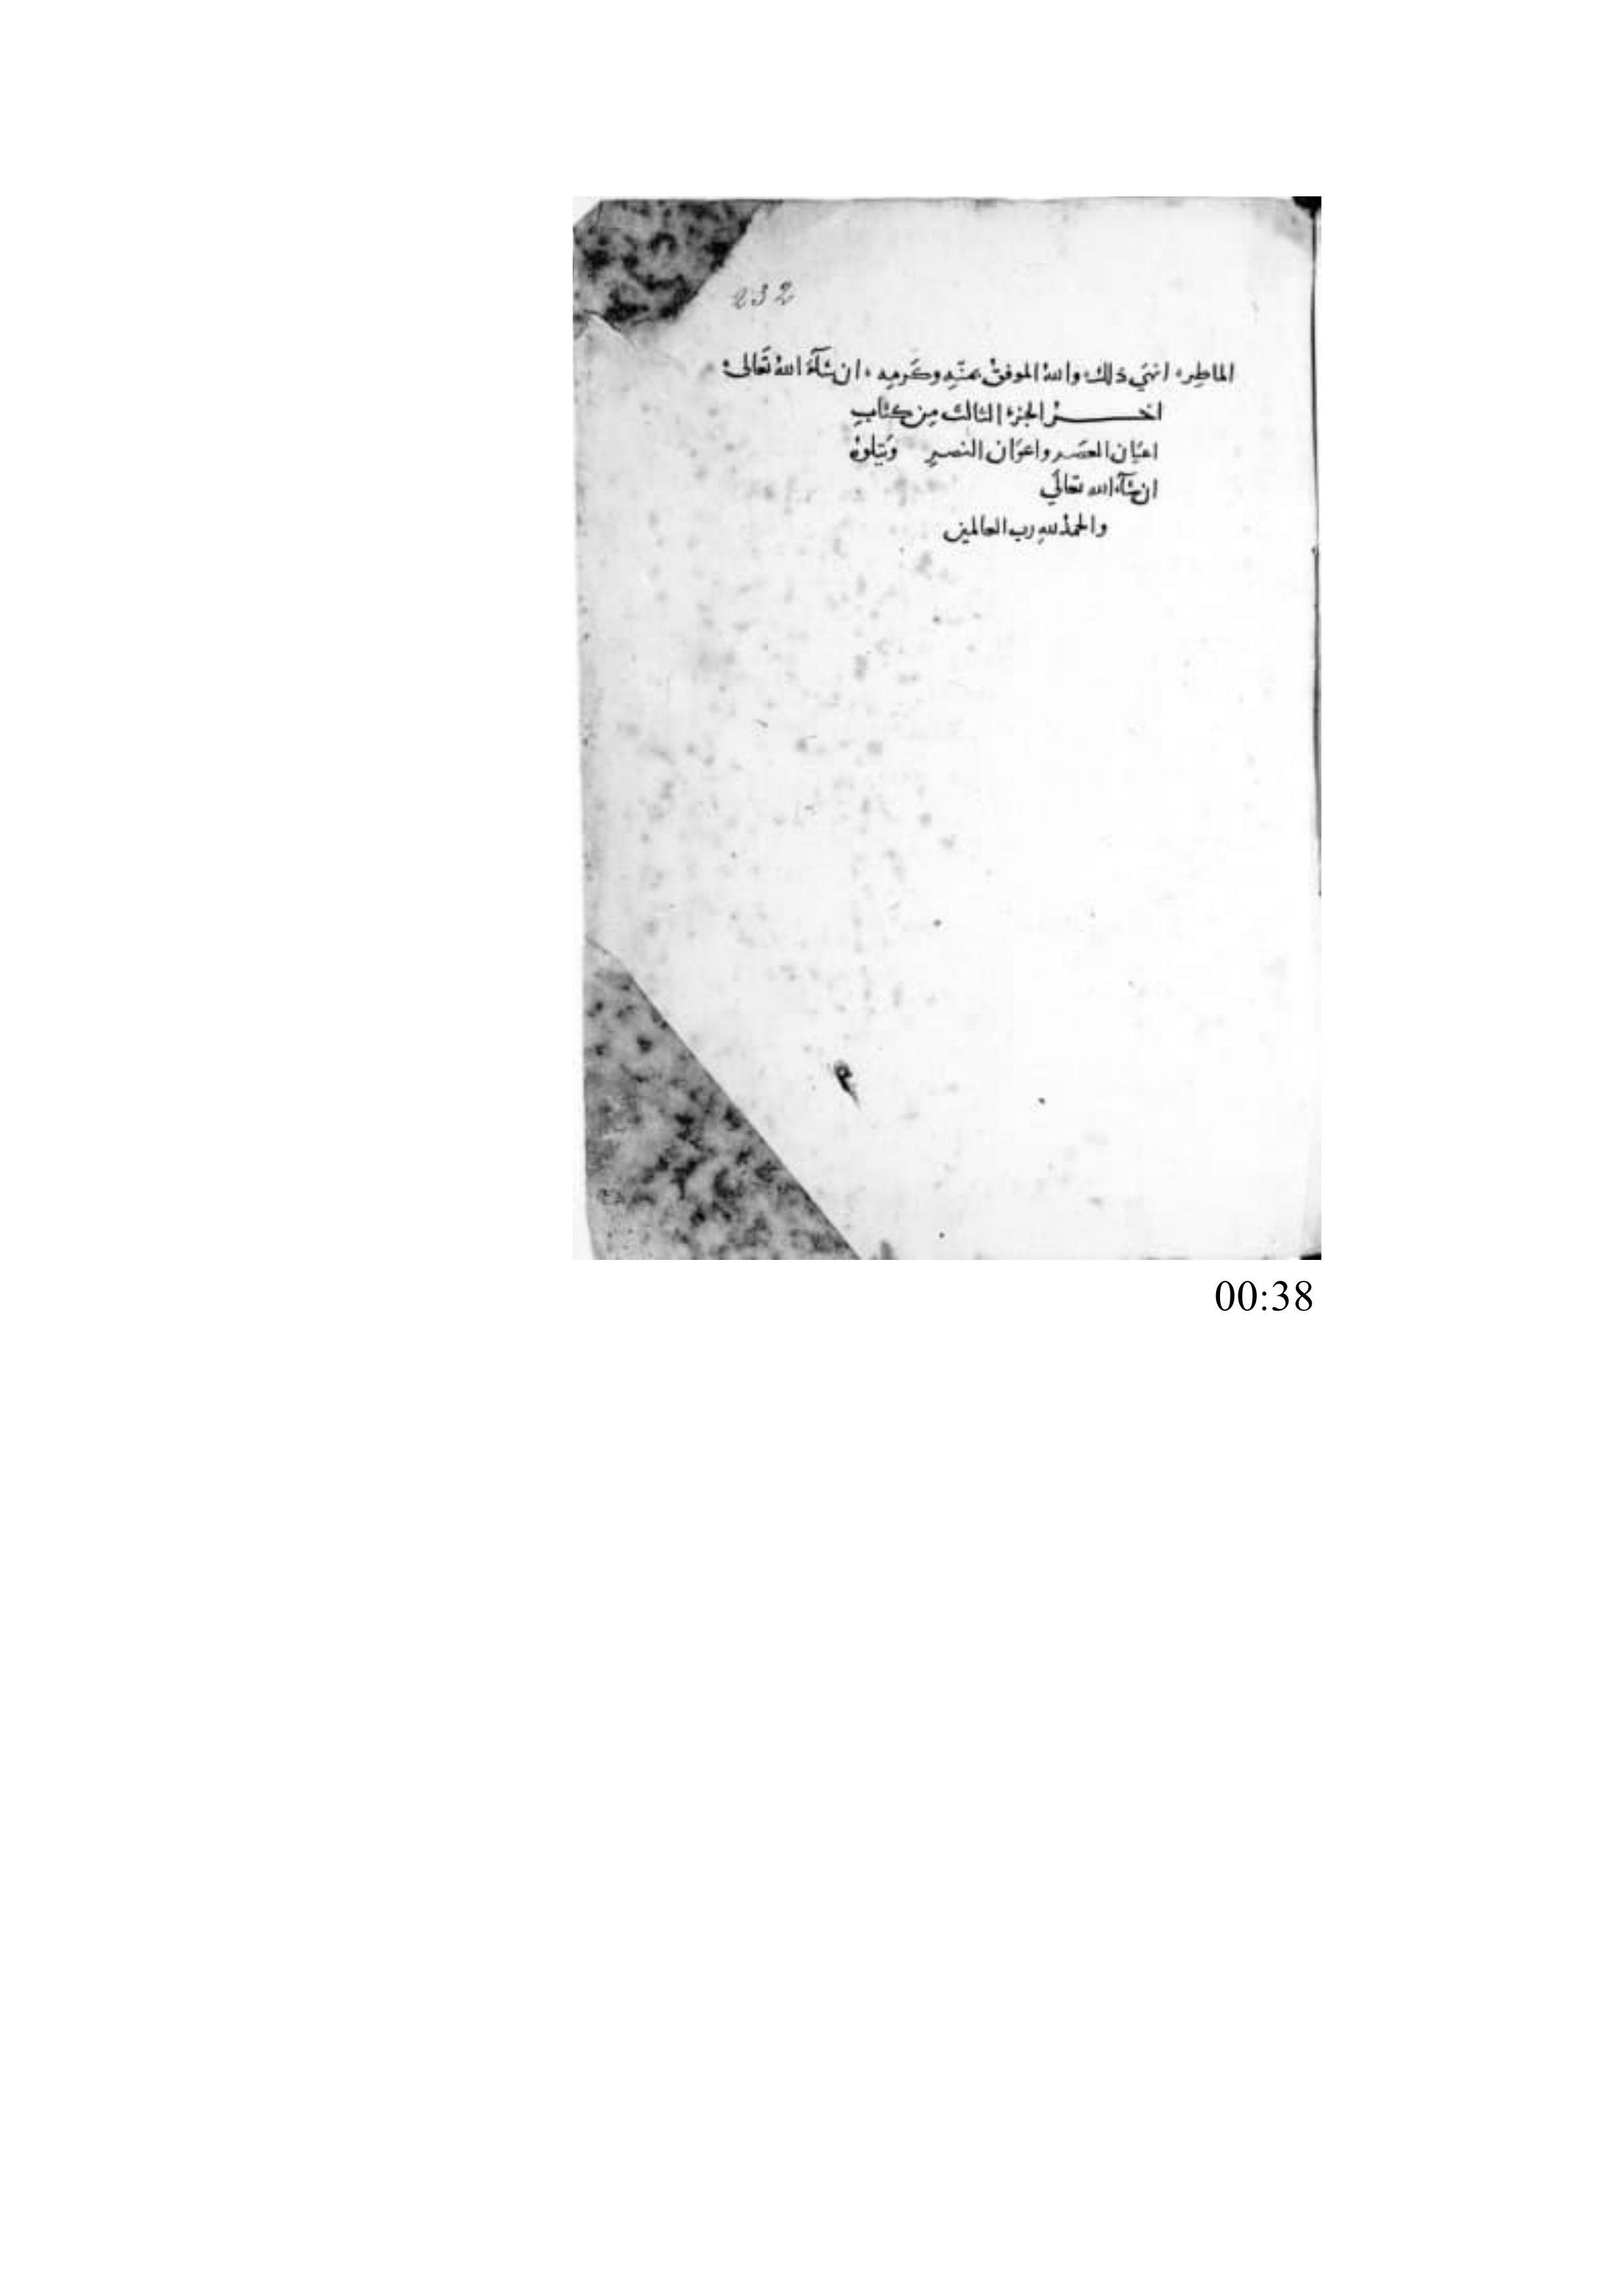 232
الماطِر، انتهي ذلك، واللهُ الموفقُ بمنّهِ وكَرمِه، ان شآءَ اللهُ تَعَالى،
اخــــرُ الجزءِ الثالث مِن كتابِ
اعيَان العصَر واعوَان النصرِ وَيتلوهُ
ان شآءَ الله تعَالَي
والحمدُ للهِ رب العالمين
00:38